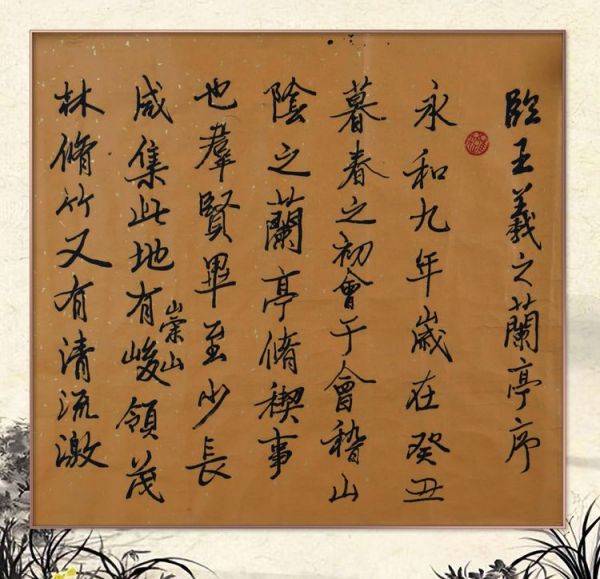 臨王羲之蘭亭序
永和九年歲在癸丑
暮春之初會于會稽山
陰之蘭亭脩稧事
也羣賢畢至少長
咸集此地有崇山峻領茂
林脩竹又有清流激